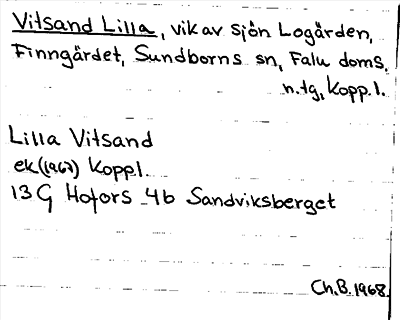 Vitsand Lilla, vik av sjön Logärden,
Finngärdet, Sundborns sn, Falu doms.
n.tg, Kopp.l.
Lilla Vitsand
ek (1967) Kopp.l.
13 G Hofors 4b Sandviksberget
Ch.B. 1968.